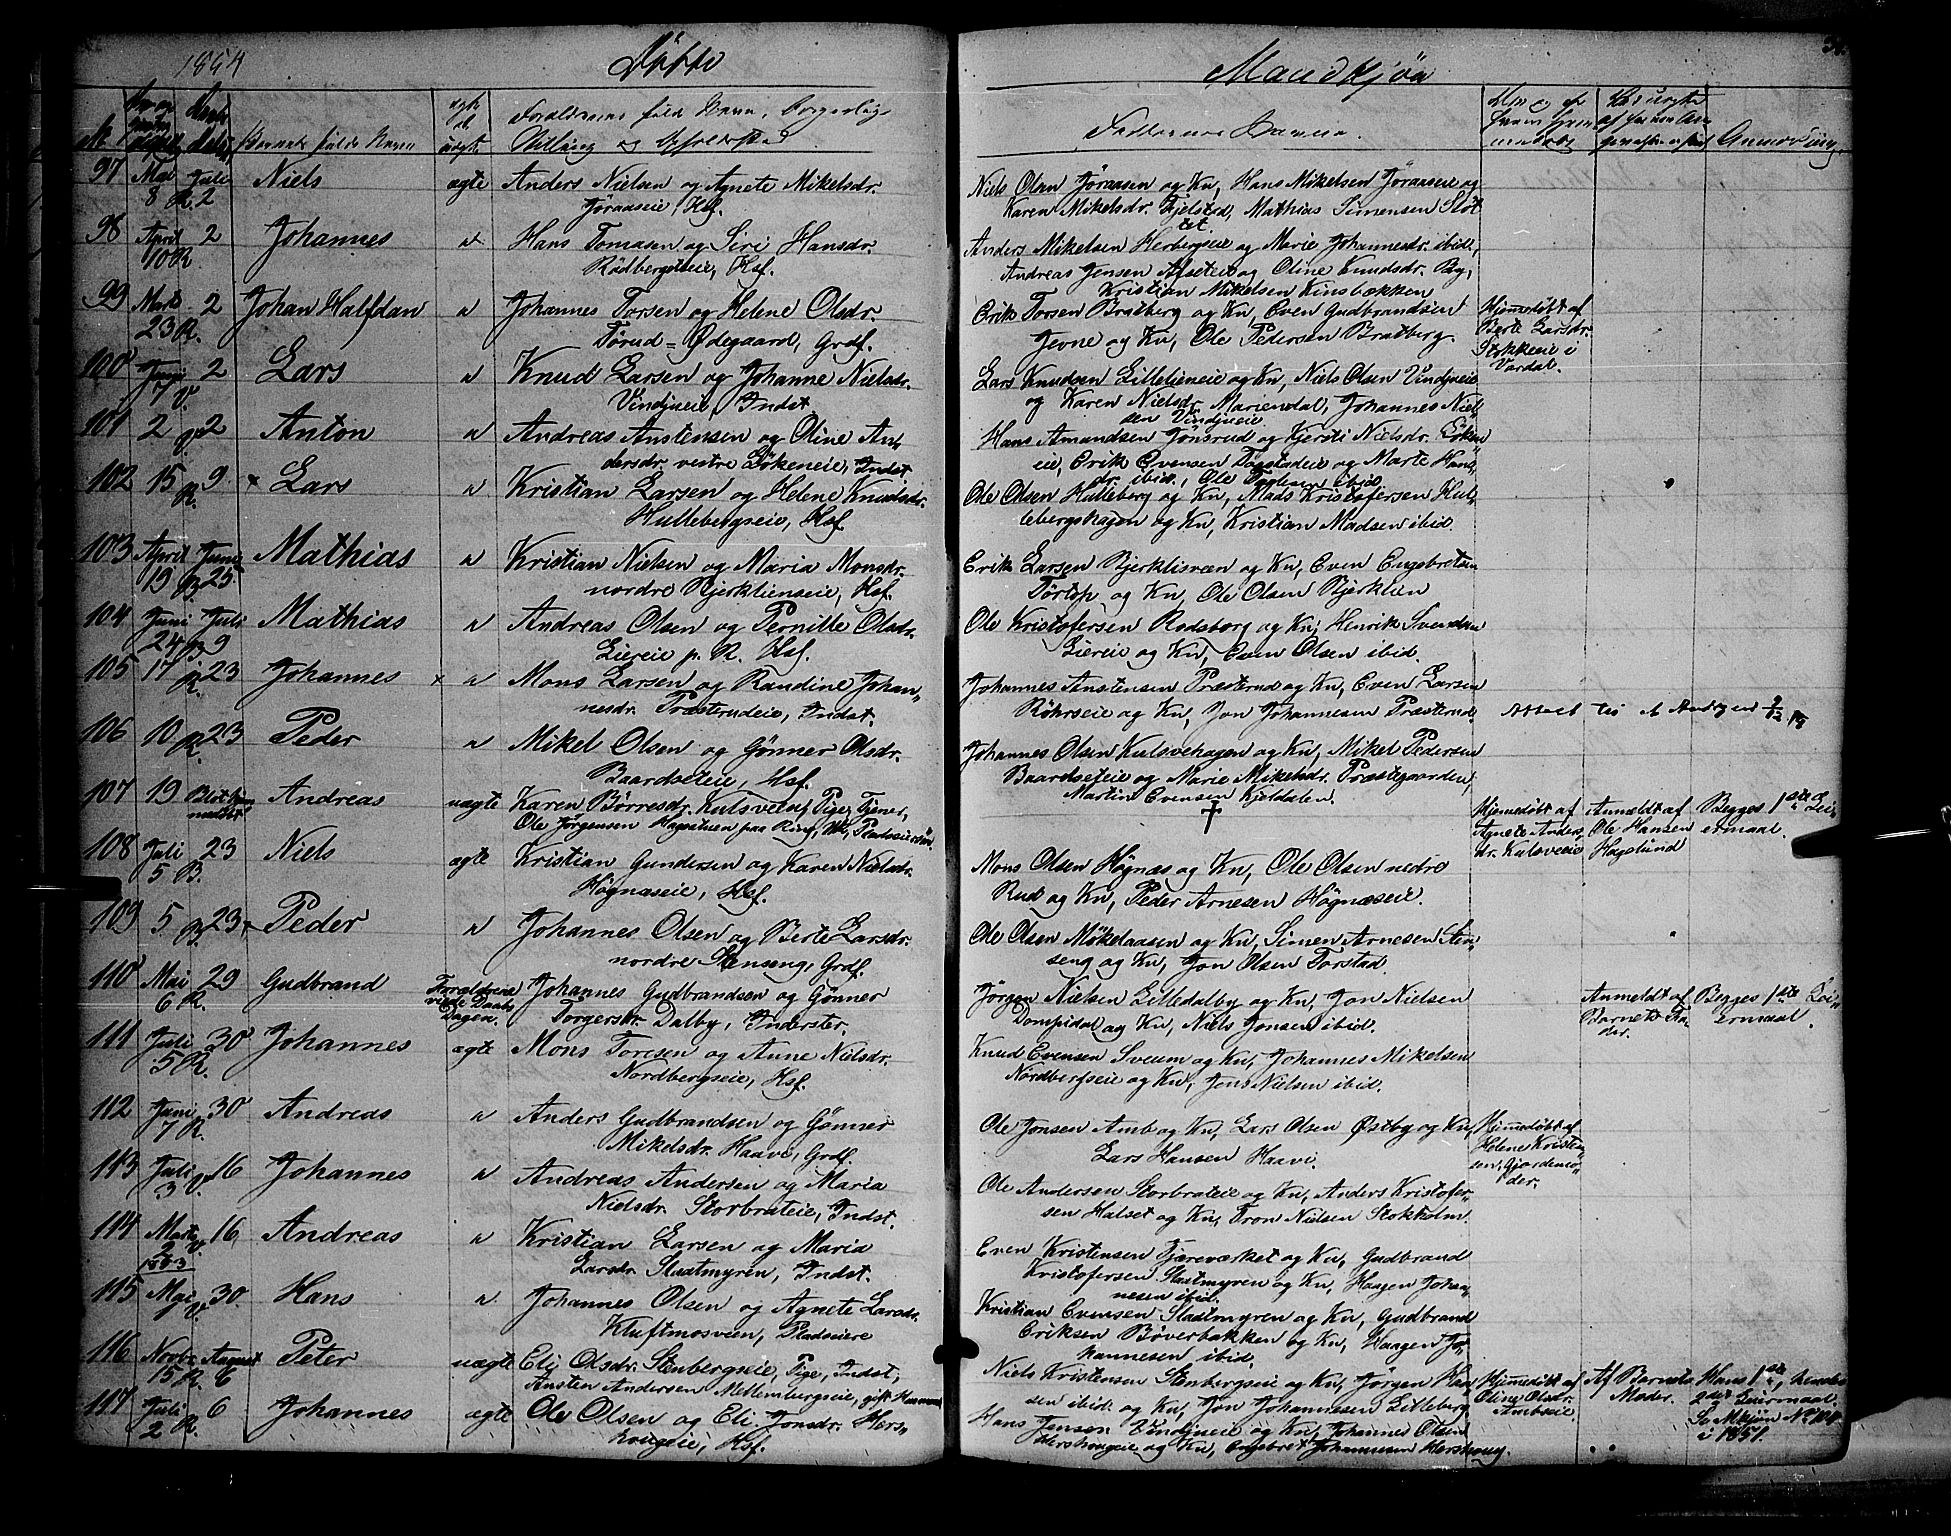 1854 Döbte Mandkjøn
No. Barnets fulde Navn
Forældrenes fulde Navn, Borgerlige
Stilling og Opholdssted
Faddernes Navne.
Anmærkning
97 Mai 8 R. Juli 2 Niels ægte Anders Nielsen og Agnete Mikelsdr.
Jøraaseie, Hsf.
Niels Olsen Jøraasen og Kn, Hans Mikelsen Jøraaseie og
Karen Mikelsdr. Fjelstad, Mathias Simensen Slöt
tet.
98 April 10 R. 2 Johannes " Hans Tomasen og Siri Hansdr.
Rödbergseie, Hsf.
Anders Mikelsen Herbergseie og Marie Johannesdr. ibid,
Andreas Jensen Alseteie og Oline Knudsdr. By,
Kristian Mikelsen Kinsbækken
99 Marts 23 R. 2 Johan Halfdan " Johannes Torsen og Helene Olsdr.
Torud = Ødegaard, Grdf.
Erik Torsen Bratberg og Kn, Even Gudbrandsen
Jevne og Kn, Ole Pedersen Bratberg.
Hjemmedöbt af
Berte Larsdr.
Stokkeeie i
Vardal.
100 Juni 7 V. 2 Lars " Knud Larsen og Johanne Nielsdr.
Vindjueie, Indst.
Lars Knudsen Lillelieneie og Kn, Niels Olsen Vindjueie
og Karen Nielsdr. Mariendal, Johannes Niel-
sen Vindjueie
101 2 V. 2 Anton " Andreas Anstensen og Oline An-
dersdr. vestre Lökeneie, Indst
Hans Amundsen Jönsrud og Kjersti Nielsdr. Löken
eie, Erik Evensen Taastadeie og Marte Hans
dr. ibid., Ole ibid
102 15 R. 9 Lars " Kristian Larsen og Helene Knudsdr.
Hullebergseie, Hsf.
Ole Olsen Hulleberg og Kn, Mads Kristofersen Hul-
lebergshagen og Kn, Kristian Madsen ibid.
103 April 19 B. Juni 25 Mathias " Kristian Nielsen og Maria Monsdr.
nordre Bjerklieneie, Hsf.
Erik Larsen Bjerklisveen og Kn, Even Engebretsen
Törtop og Kn, Ole Olsen Bjerklien
104 Juni 24 B. Juli 9 Mathias " Andreas Olsen og Pernille Olsdr.
Liereie p. R. Hsf.
Ole Kristofersen Rodsborg og Kn, Henrik Svendsen
Liereie og Kn, Even Olsen ibid.
105 17 R. 23 Johannes × " Mons Larsen og Randine Johan-
nesdr. Præsterudeie, Indst.
Johannes Anstensen Præsterud og Kn, Even Larsen
Röhrseie og Kn, Jon Johannesen Præsterud
Attest til
106 10 R. 23 Peder " Mikel Olsen og Gönner Olsdr.
Baardseteie, Hsf.
Johannes Olsen Kulsvehagen og Kn, Mikel Pedersen
Baardseteie og Marie Mikelsdr. Præstegaarden,
Martin Evensen Kjeldalen.
107 19 Blot hjemmedöbt Andreas uægte Karen Börresdr. Kulsveeie, Pige, Tjener,
Ole Jörgensen Hagestuen paa Ring,
†
Hjemmedöbt af
Agnete Anders
dr. Kulsveeie
Anmeldt af
Ole Hansen
Hagelund
Begges 1ste Lei-
ermaal.
108 Juli 5 B. 23 Niels ægte Kristian Gundersen og Karen Nielsdr.
Högnæseie, Hsf.
Mons Olsen Högnæs og Kn, Ole Olsen nedre
Rud og Kn, Peder Arnesen Högnæseie.
109 5 B. 23 Peder " Johannes Olsen og Berte Larsdr.
nordre Stenseng, Grdf.
Ole Olsen Mökelaasen og Kn, Simen Arnesen Sten-
seng og Kn, Jon Olsen Torstad.
110 Mai 6 R. 29 Gudbrand Forældrene
viede Daabs
Dagen. Johannes Gudbrandsen og Gönner
Torgersdr. Dalby, Inderster.
Jörgen Nielsen Lilledalby og Kn, Jon Nielsen
Dompidal og Kn, Niels Jonsen ibid.
Anmeldt af
Barnets Fa-
der.
Begges 1ste Lei-
ermaal.
111 Juli 5 R. 30 Johannes ægte Mons Toresen og Anne Nielsdr.
Nordbergseie, Hsf.
Knud Evensen Sveum og Kn, Johannes Mikelsen
Nordbergseie og Kn, Jens Nielsen ibid.
112 Juni 7 R. 30 Andreas " Anders Gudbrandsen og Gönner
Mikelsdr. Haave, Grdf.
Ole Jonsen Amb og Kn, Lars Olsen Østby og Kn,
Lars Hansen Haave.
Hjemmedöbt af
Helene Kristen-
sen, Gjordemo-
der.
113 Juli 3 V. 16 Johannes " Andreas Andersen og Maria
Nielsdr. Storbrateie, Indst.
Ole Andersen Storbrateie og Kn, Anders Kristofer-
sen Halset og Kn, Tron Nielsen Stokholm.
114 Marts 2 V. 1853 16 Andreas " Kristian Larsen og Maria
Larsdr. Slaatmyren, Indst.
Even Kristensen Tjæreværket og Kn, Gudbrand
Kristofersen Slaatmyren og Kn, Haagen Johan-
nesen ibid.
115 Mai 7 V. 30 Hans " Johannes Olsen og Agnete Larsdr.
Kluftmosveen, Pladseiere
Kristian Evensen Slaatmyren og Kn, Gudbrand
Eriksen Böverbakken og Kn, Haagen Jo-
hannesen ibid.
116 Novbr. 15 R. August 6 Peter uægte Eli Olsdr. Stenbergseie, Pige, Indst,
Ansten Andersen Mellembergseie, gift Huusmand
Niels Kristensen Stenbergseie og Kn, Jörgen Han
sen ibid. og Kn, Jon Johannesen Lilleberg.
Hjemmedöbt af
Oline Olsdr.
Ambseie.
Af Barnets
Moder.
Hans 1ste, hendes
2det Leiermaal.
Se Mkjön No 104
i 1851.
117 Juli 2 R. 6 Johannes ægte Ole Olsen og Eli Jonsdr. Hers-
hougeie, Hsf.
Hans Jensen Vindjueie og Kn, Johannes Olsen
Hershougeie og Kn, Engebret Johannesen Hershoug.